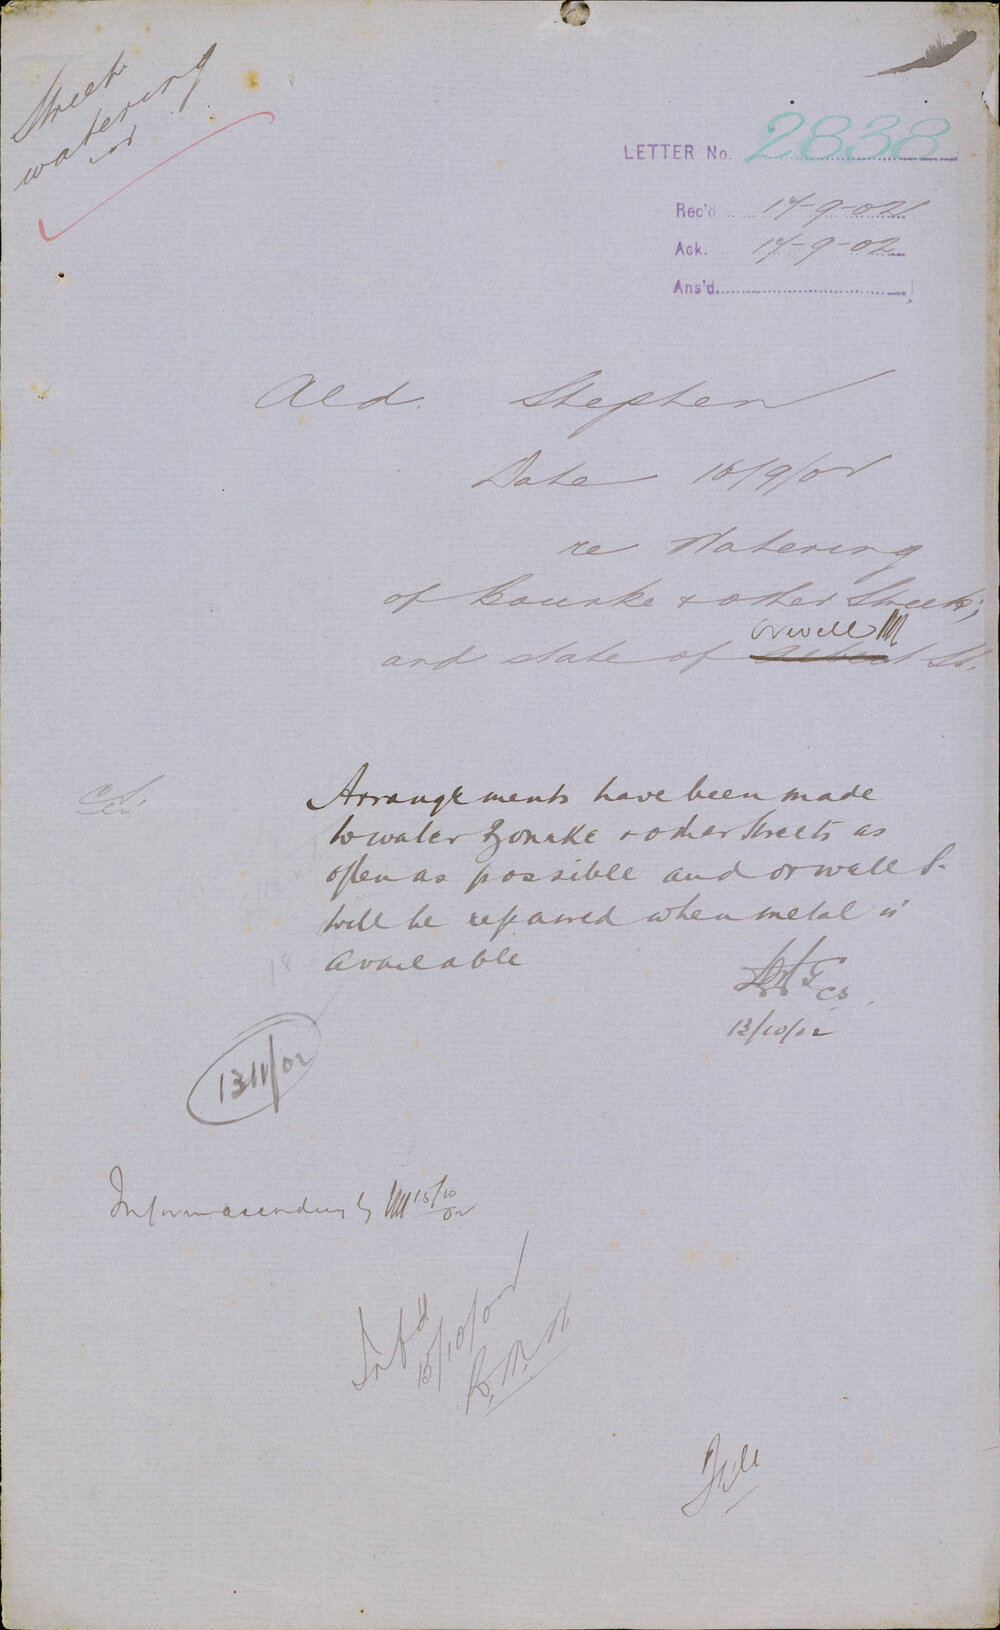 Streets
watering
LETTER No. 2838
Rec'd 17-9-02
Ack. 17-9-02
Ans'd.
Ald. Stephen
Date 16/9/02
re Watering
of Bourke & other Streets;
orwell
and state of Albert St.
C.S.
Arrangements have been made
to water Bourke & other Streets as
often as possible and orwell S.
will be repaired when metal is
available
CS
13/10/02
1311/02
Inform accordingly 15/10/02
Inf'd
15/10/02
File